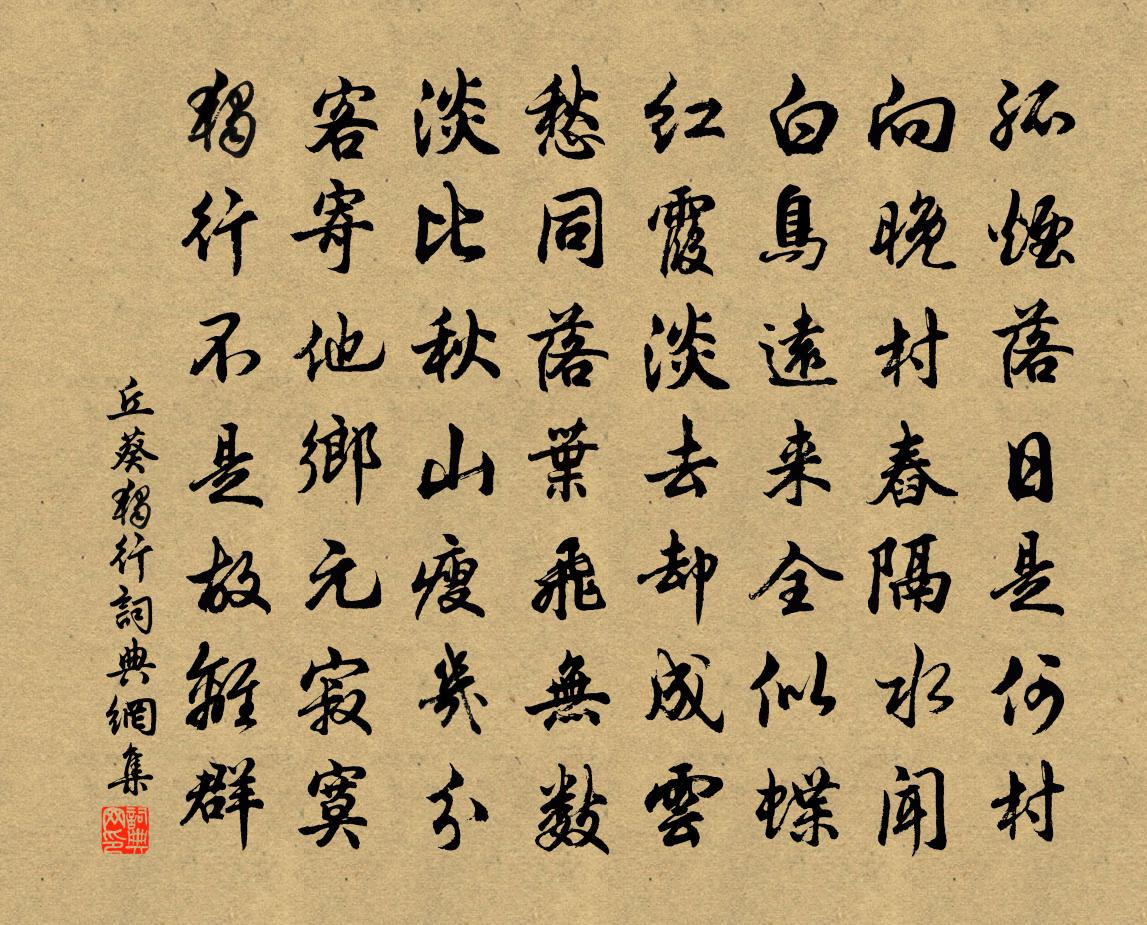 孤煙落日是何村
向晚村舂隔水闻
白鳥遠来全似蝶
红霞淡去却成雲
愁同落葉飛無数
淡比秋山瘦幾分
客寄他鄉元寂寞
獨行不是故離群
丘葵獨行詞典網集
詞典網印